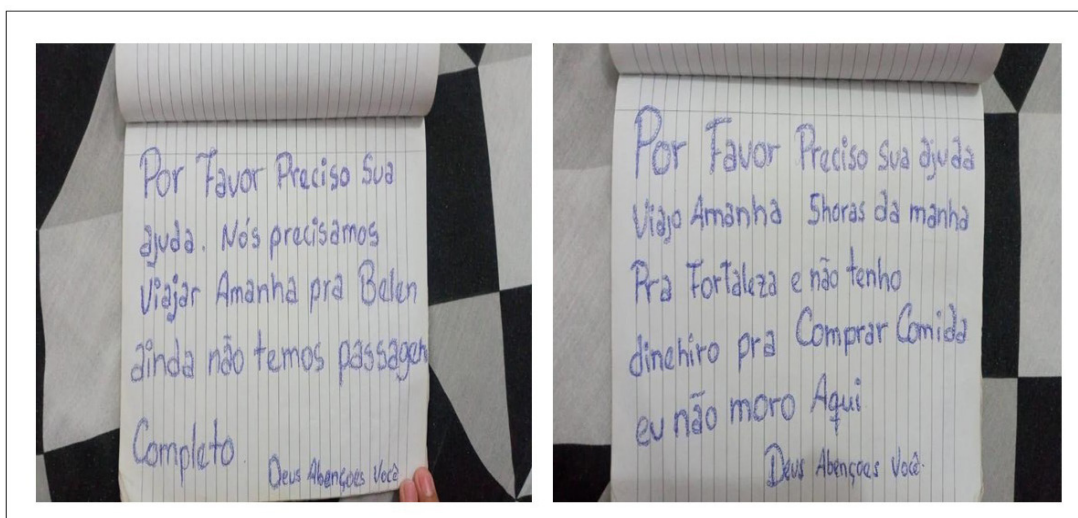 Por Favor Preciso Sua
ajuda. Nós precisamos
Viajar Amanha pra Belen
ainda não temos passagen
Completo
Deus Abençoes Você
Por Favor Preciso sua ajuda
Viajo Amanha 5horas da manha
Pra Fortaleza e não tenho
dinehiro pra Comprar Comida
eu não moro Aqui
Deus Abençoes Você.